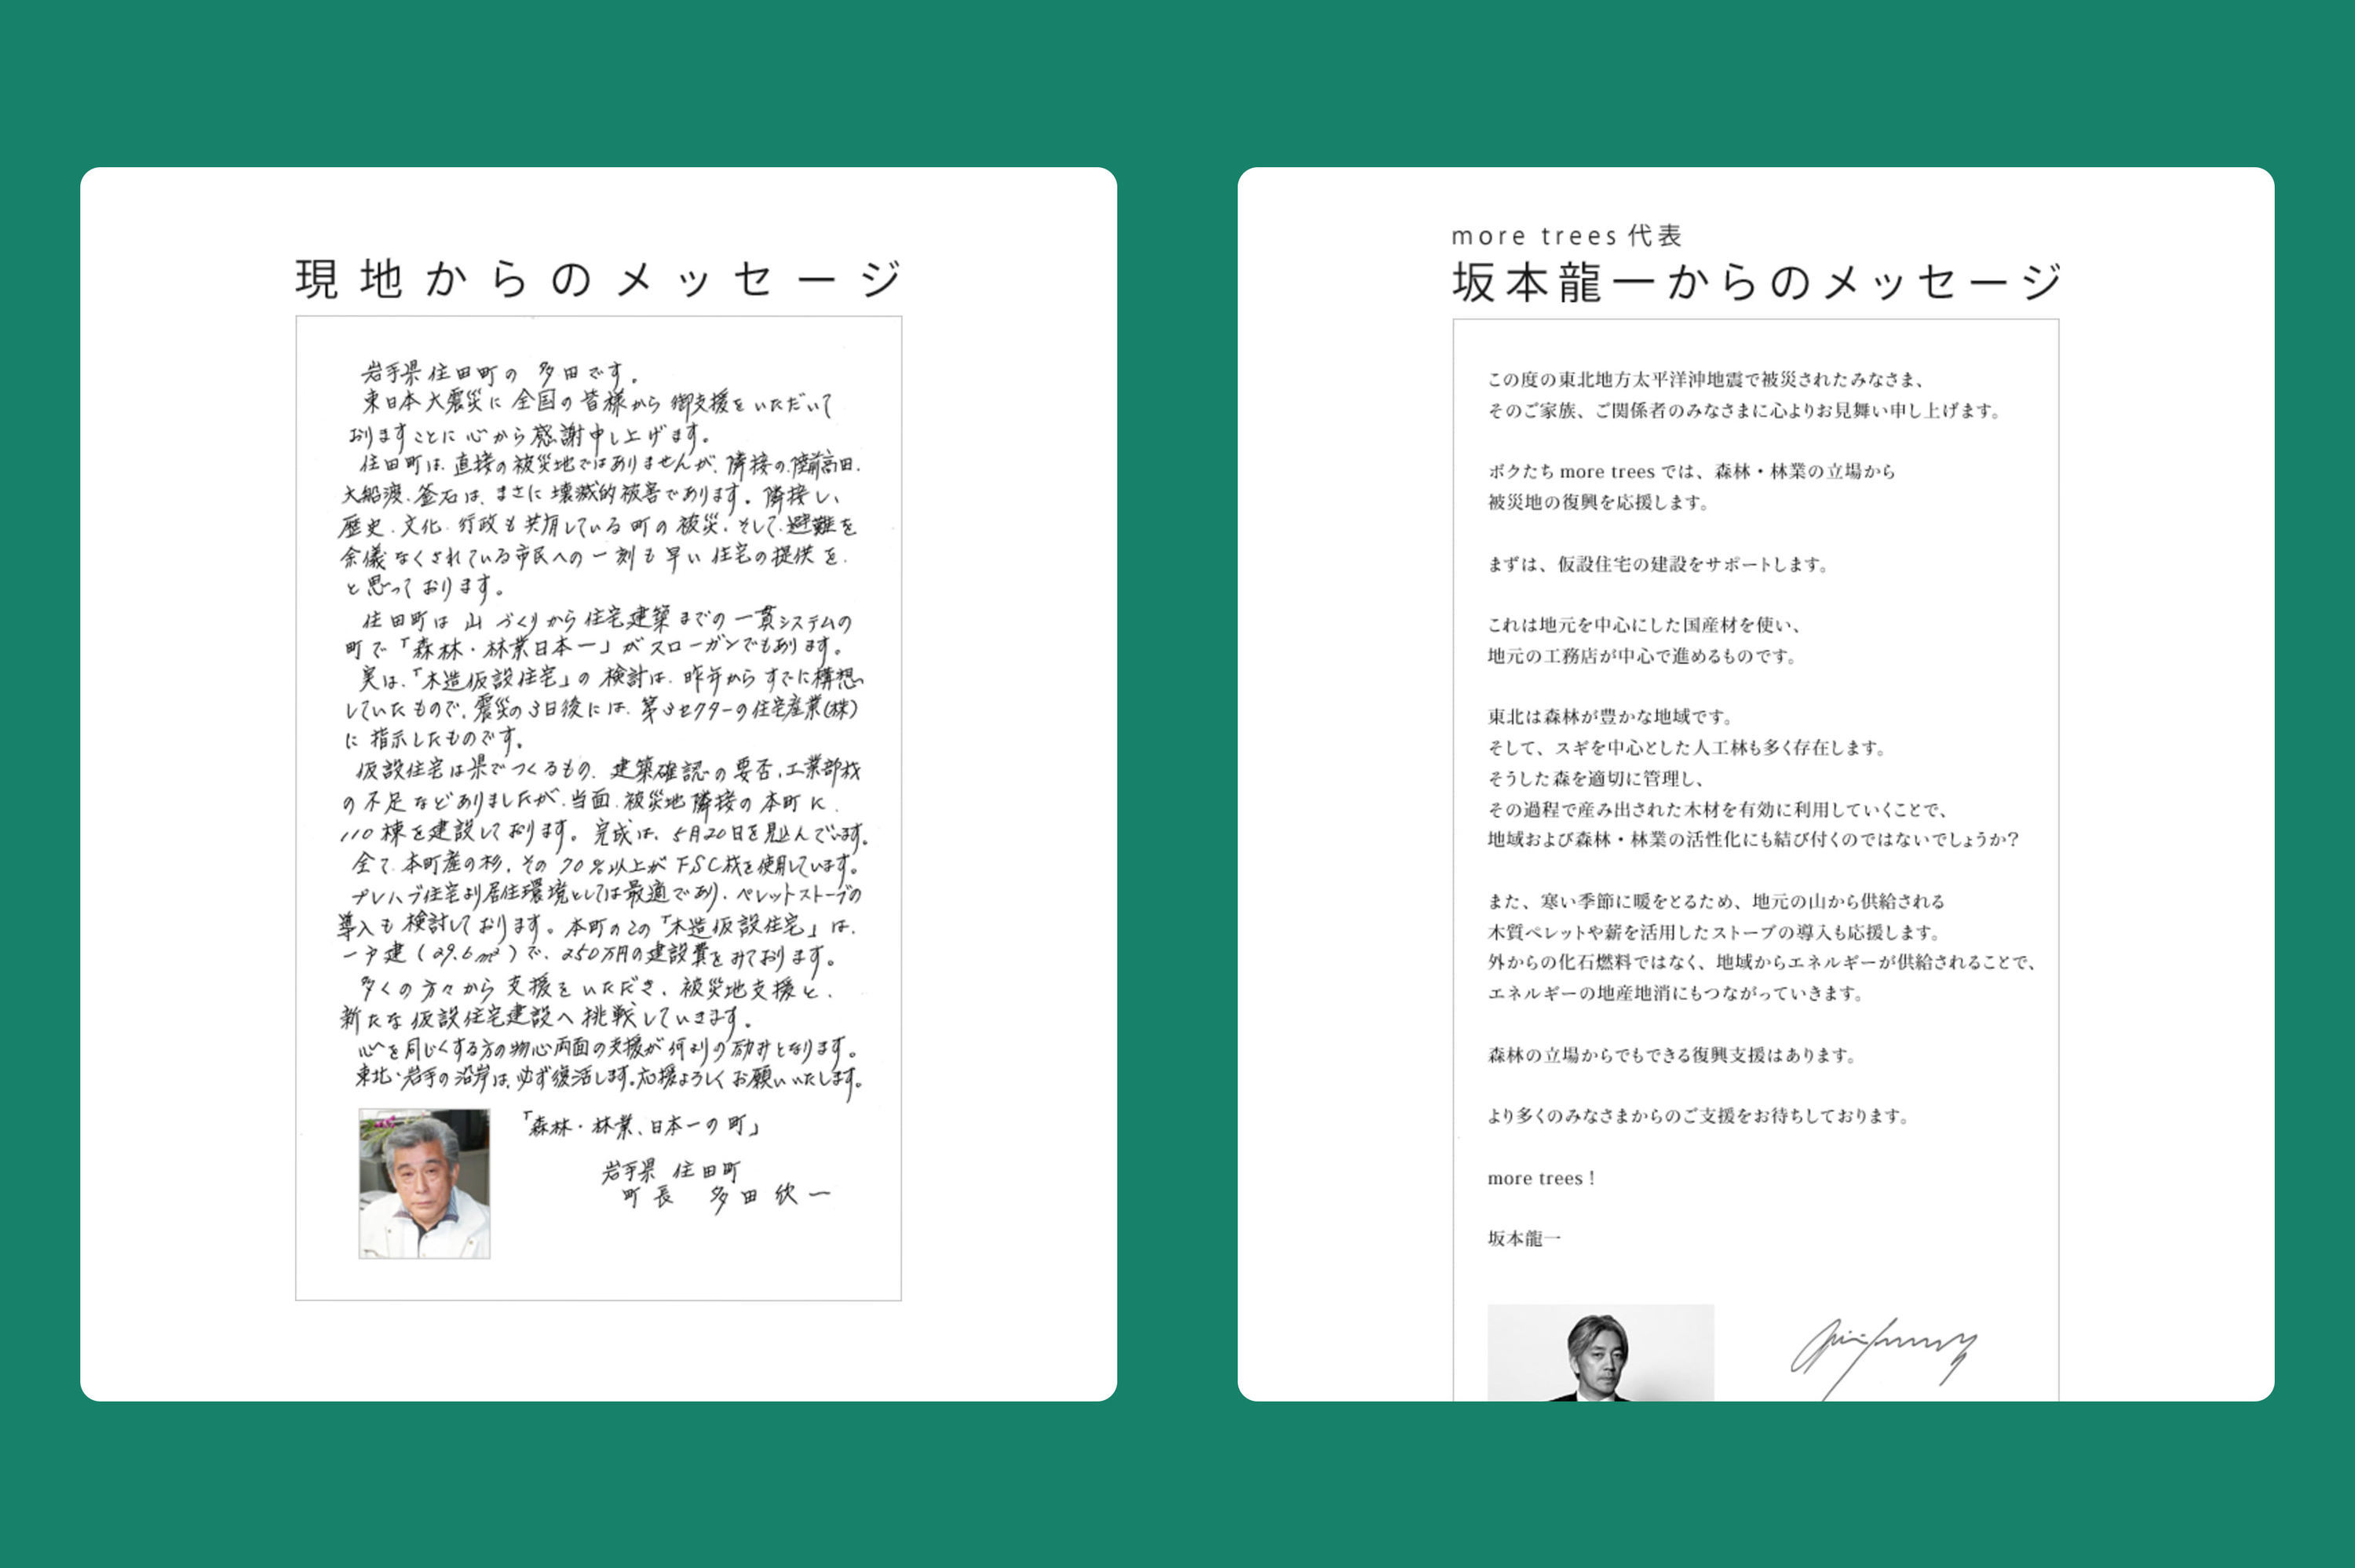 現地からのメッセージ
岩手県住田町の 多田です。
東日本大震災に全国の皆様から御支援をいただいて
おりますことに心から感謝申し上げます。
住田町は、直接の被災地ではありませんが、隣接の、陸前高田、
大船渡、釜石は、まさに壊滅的被害であります。隣接し、
歴史、文化、行政も共有している町の被災、そして、避難を
余儀なくされている市民への一刻も早い住宅の提供を、
と思っております。
住田町は山づくりから住宅建築までの一貫システムの
町で「森林・林業日本一」がスローガンでもあります。
実は、「木造仮設住宅」の検討は、昨年からすでに構想
していたもので、震災の3日後には、第3セクターの住宅産業(株)
に指示したものです。
仮設住宅は県でつくるもの、建築確認の要否、工業部材
の不足などありましたが、当面、被災地隣接の本町に、
110棟を建設しております。完成は、5月20日を見込んでいます。
全て、本町産の杉、その70%以上がFSC材を使用しています。
プレハブ住宅より居住環境としては最適であり、ペレットストーブの
導入も検討しております。本町のこの「木造仮設住宅」は、
一戸建(29.6㎡)で、250万円の建設費をみております。
多くの方々から支援をいただき、被災地支援と、
新たな仮設住宅建設へ挑戦していきます。
心を同じくする方の物心両面の支援が何よりの励みとなります。
東北・岩手の沿岸は、必ず復活します。応援よろしくお願いいたします。
「森林・林業、日本一の町」
岩手県 住田町
町長 多田欣一
more trees 代表
坂本龍一からのメッセージ
この度の東北地方太平洋沖地震で被災されたみなさま、
そのご家族、ご関係者のみなさまに心よりお見舞い申し上げます。
ボクたち more trees では、森林・林業の立場から
被災地の復興を応援します。
まずは、仮設住宅の建設をサポートします。
これは地元を中心にした国産材を使い、
地元の工務店が中心で進めるものです。
東北は森林が豊かな地域です。
そして、スギを中心とした人工林も多く存在します。
そうした森を適切に管理し、
その過程で産み出された木材を有効に利用していくことで、
地域および森林・林業の活性化にも結び付くのではないでしょうか?
また、寒い季節に暖をとるため、地元の山から供給される
木質ペレットや薪を活用したストーブの導入も応援します。
外からの化石燃料ではなく、地域からエネルギーが供給されることで、
エネルギーの地産地消にもつながっていきます。
森林の立場からでもできる復興支援はあります。
より多くのみなさまからのご支援をお待ちしております。
more trees !
坂本龍一